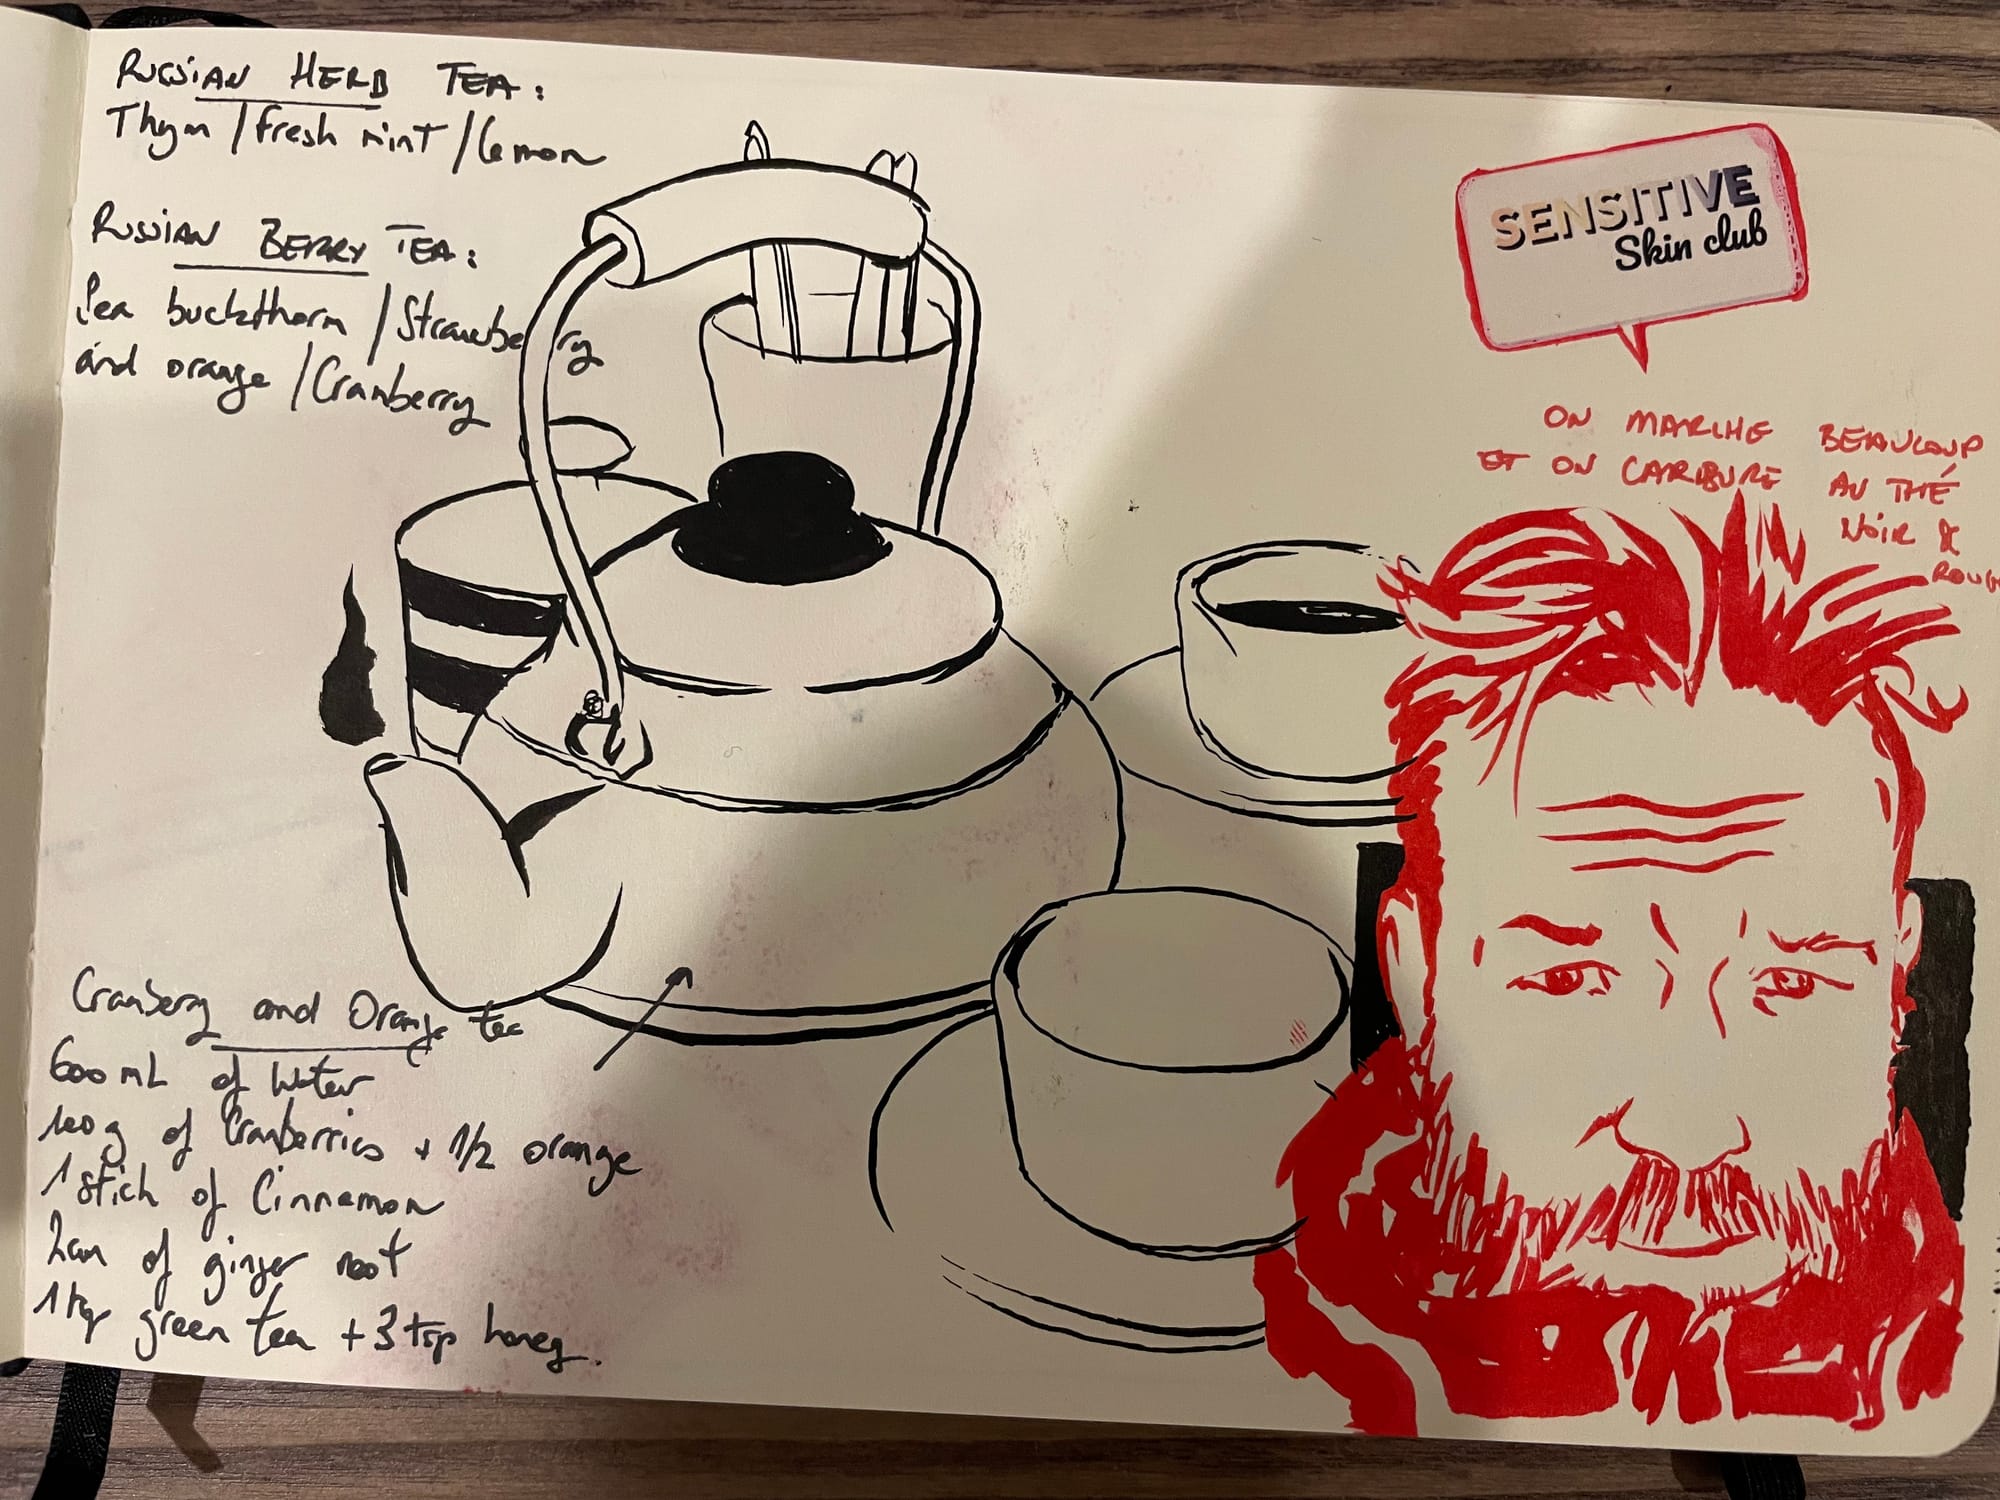 RUSSIAN HERB TEA:
Thym / fresh mint / lemon
RUSSIAN BERRY TEA:
Sea buckthorn / Strawberry
and orange / Cranberry
Cranberry and Orange tea
600 mL of Water
100g of Cranberries + 1/2 orange
1 stick of Cinnamon
2cm of ginger root
1 tsp green tea + 3 tsp honey.
SENSITIVE
Skin club
ON MARCHE BEAUCOUP
ET ON CARBURE AU THÉ
NOIR &
ROUGE